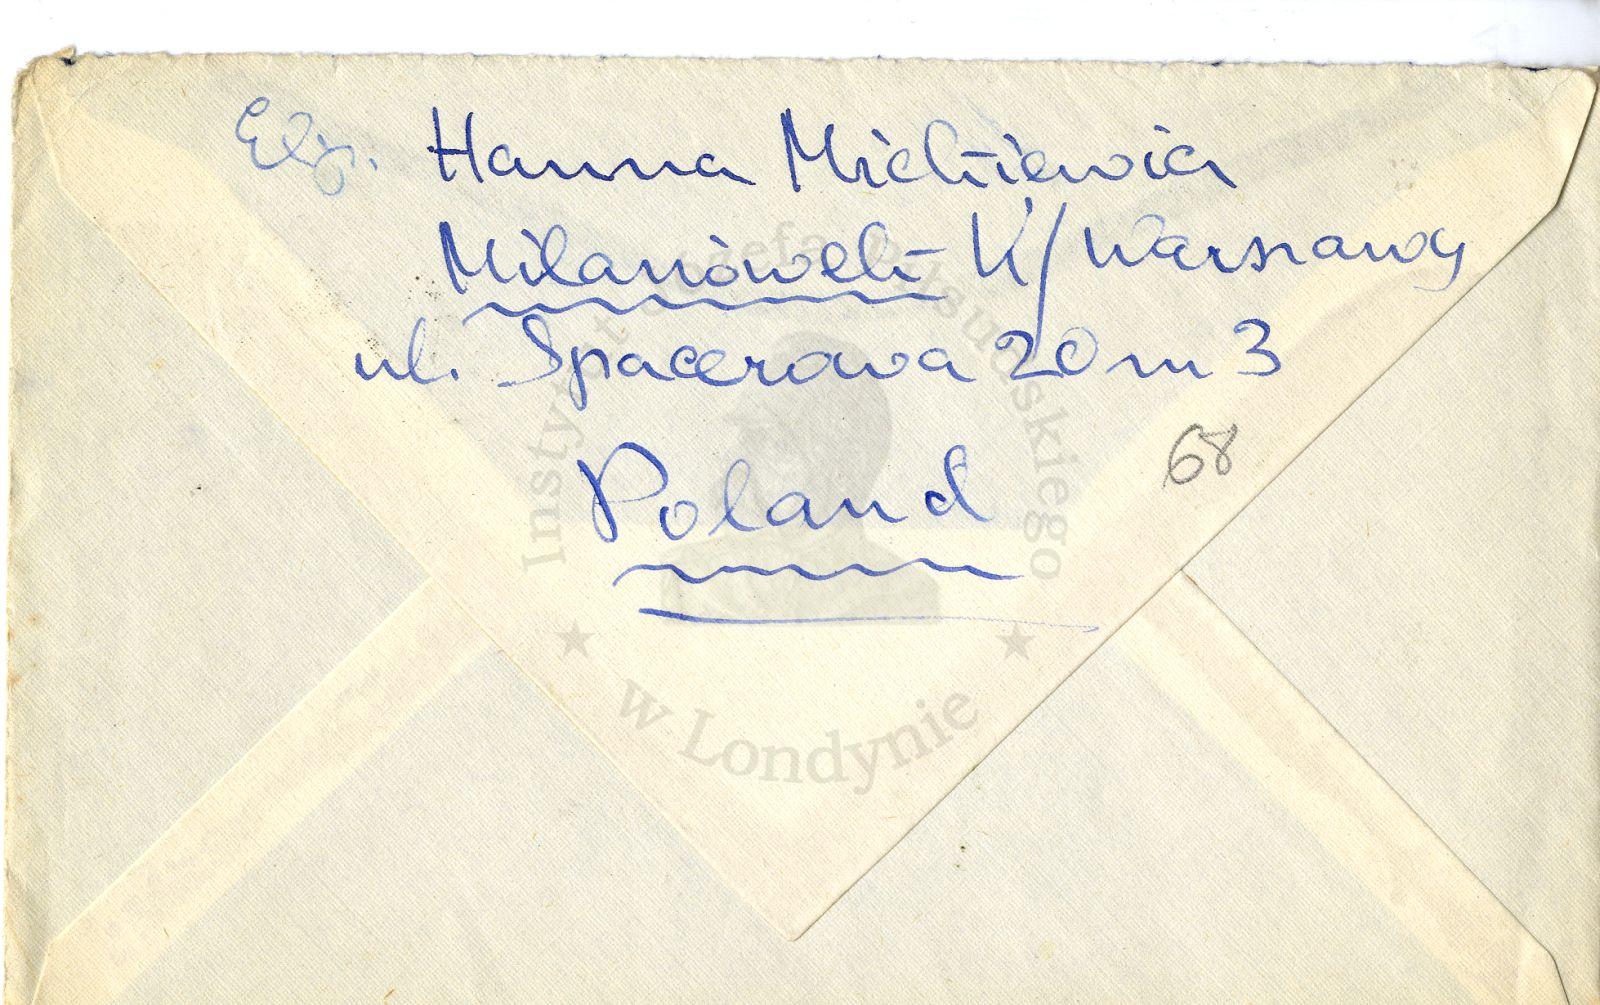 Exp. Hanna Mickiewicz
Milanówek K/Warszawy
ul. Spacerowa 20 m 3
Poland
68
Instytut Józefa Piłsudskiego
w Londynie